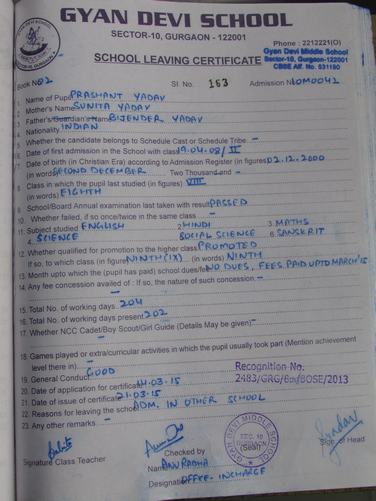 GYAN DEVI SCHOOL
SECTOR-10, GURGAON - 122001
Phone : 2212221(O)
Gyan Devi Middle School
Sector-10, Gurgaon-122001
CBSE Aff. No. 531180
SCHOOL LEAVING CERTIFICATE
Book No 02 Sl No. 163 Admission No 10M0042
1. Name of Pupil PRASHANT YADAV
2. Mother's Name SUNITA YADAV
3. Father's/Guardian's Name BIJENDER YADAV
4. Nationality INDIAN
5. Whether the candidate belongs to Schedule Cast or Schedule Tribe -
6. Date of first admission in the School with class 19.04.08/ II
7. Date of birth (in Christian Era) according to Admission Register (in figures) 02.12.2000
(in words) SECOND DECEMBER Two Thousand and -
8. Class in which the pupil last studied (in figures) VIII
(in words) EIGHTH
9. School/Board Annual examination last taken with result PASSED
10. Whether failed, if so once/twice in the same class -
11. Subject studied 1 ENGLISH 2 HINDI 3 MATHS
4 SCIENCE 5 SOCIAL SCIENCE 6. SANSKRIT
12. Whether qualified for promotion to the higher class PROMOTED
If so, to which class (in figure) NINTH (IX) (in words) NINTH
13. Month upto which the (pupil has paid) school dues/fee NO DUES, FEES PAID UPTO MARCH'15
14. Any fee concession availed of : If so, the nature of such concession -
15. Total No. of working days 204
16. Total No. of working days present 202
17. Whether NCC Cadet/Boy Scout/Girl Guide (Details May be given) -
18. Games played or extra/curricular activities in which the pupil usually took part (Mention achievement
level there in) -
19. General Conduct GOOD
20. Date of application for certificate 14.03.15
21. Date of issue of certificate 21.03.15
22. Reasons for leaving the school ADM. IN OTHER SCHOOL
23. Any other remarks -
Recognition No.
2483/GRG/
/2013
GYAN DEVI MIDDLE SCHOOL
SEC. 10
GURGAON
(Seal)
Signature Class Teacher
Checked by
Name ANURADHA
Designation OFFICE-INCHARGE
of Head